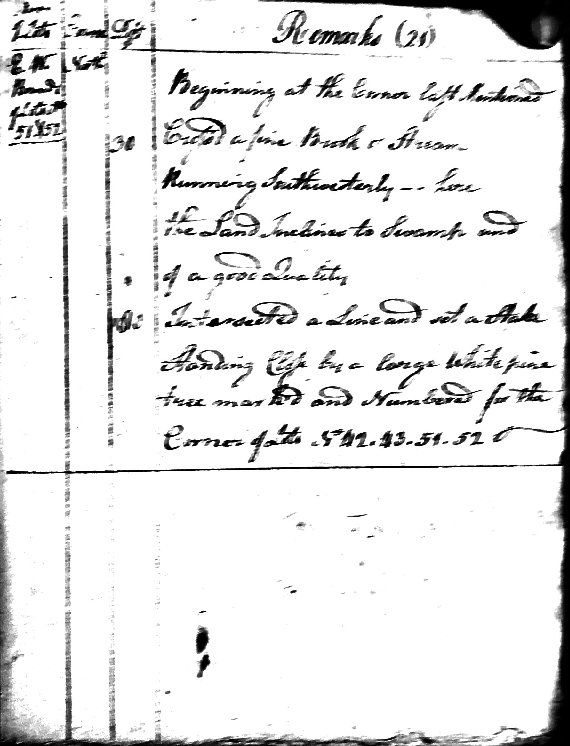 Remarks (21)
Lots Course Dist
E. th North
Bound
of Lots No
51 & 52
Beginning at the Corner last Mentioned
30 Cross'd a fine Brook or Stream
Running Southwesterly -- here
the Land Inclines to Swamp and
of a good Quality
Intersected a Line and set a Stake
Standing Close by a large White pine
tree mark'd and Numbered for the
Corner of Lots No 42. 43. 51. 52